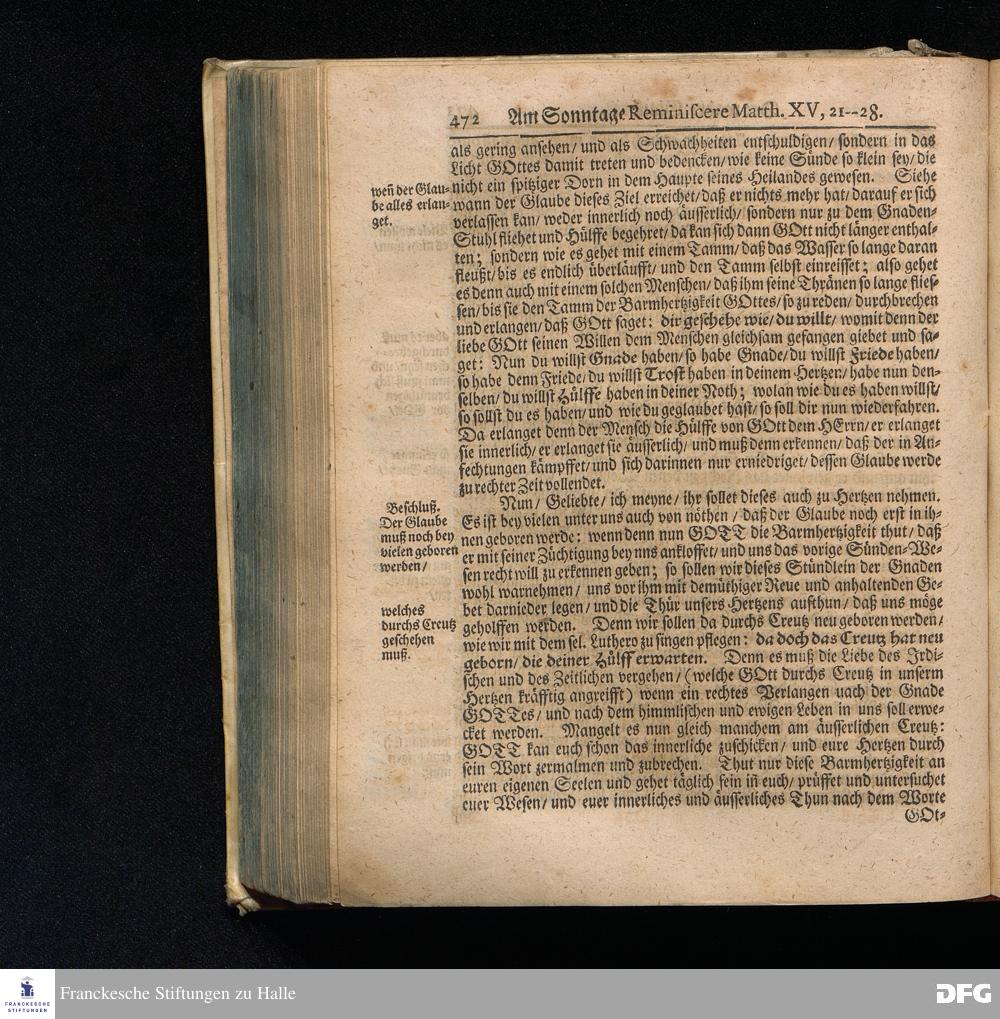 472 Am Sonntage Reminiſcere Matth. XV, 21--28.
als gering anſehen/ und als Schwachheiten entſchuldigen/ ſondern in das
Licht GOttes damit treten und bedencken/ wie keine Sünde ſo klein ſey/ die
nicht ein ſpitziger Dorn in dem Haupte ſeines Heilandes geweſen. Siehe
wann der Glaube dieſes Ziel erreichet/ daß er nichts mehr hat/ darauf er ſich
verlaſſen kan/ weder innerlich noch äuſſerlich/ ſondern nur zu dem Gnaden-
Stuhl fliehet und Hülffe begehret/ da kan ſich dann GOtt nicht länger enthal-
ten; ſondern wie es gehet mit einem Tamm/ daß das Waſſer ſo lange daran
fleußt/ bis es endlich überläufft/ und den Tamm ſelbſt einreiſſet; alſo gehet
es denn auch mit einem ſolchen Menſchen/ daß ihm ſeine Thränen ſo lange flieſ-
ſen/ bis ſie den Tamm der Barmhertzigkeit GOttes/ ſo zu reden/ durchbrechen
und erlangen/ daß GOtt ſaget: dir geſchehe wie/ du willt/ womit denn der
liebe GOtt ſeinen Willen dem Menſchen gleichſam gefangen giebet und ſa-
get: Nun du willſt Gnade haben/ ſo habe Gnade/ du willſt Friede haben/
ſo habe denn Friede/ du willſt Troſt haben in deinem Hertzen/ habe nun den-
ſelben/ du willſt Hülffe haben in deiner Noth; wolan wie du es haben willſt/
ſo ſollſt du es haben/ und wie du geglaubet haſt/ ſo ſoll dir nun wiederfahren.
Da erlanget denn der Menſch die Hülffe von GOtt dem HErrn/ er erlanget
ſie innerlich/ er erlanget ſie äuſſerlich/ und muß denn erkennen/ daß der in An-
fechtungen kämpffet/ und ſich darinnen nur erniedriget/ deſſen Glaube werde
zu rechter Zeit vollendet.
Nun/ Geliebte/ ich meyne/ ihr ſollet dieſes auch zu Hertzen nehmen.
Es iſt bey vielen unter uns auch von nöthen/ daß der Glaube noch erſt in ih-
nen geboren werde: wenn denn nun GOTT die Barmhertzigkeit thut/ daß
er mit ſeiner Züchtigung bey uns ankloffet/ und uns das vorige Sünden-We-
ſen recht will zu erkennen geben; ſo ſollen wir dieſes Stündlein der Gnaden
wohl warnehmen/ uns vor ihm mit demüthiger Reue und anhaltenden Ge-
bet darnieder legen/ und die Thür unſers Hertzens aufthun/ daß uns möge
geholffen werden. Denn wir ſollen da durchs Creutz neu geboren werden/
wie wir mit dem ſel. Luthero zu ſingen pflegen: da doch das Creutz hat neu
geborn/ die deiner Hülff erwarten. Denn es muß die Liebe des Irdi-
ſchen und des Zeitlichen vergehen/ (welche GOtt durchs Creutz in unſerm
Hertzen kräfftig angreifft) wenn ein rechtes Verlangen uach der Gnade
GOTTes/ und nach dem himmliſchen und ewigen Leben in uns ſoll erwe-
cket werden. Mangelt es nun gleich manchem am äuſſerlichen Creutz:
GOTT kan euch ſchon das innerliche zuſchicken/ und eure Hertzen durch
ſein Wort zermalmen und zubrechen. Thut nur dieſe Barmhertzigkeit an
euren eigenen Seelen und gehet täglich fein in̄ euch/ prüffet und unterſuchet
euer Weſen/ und euer innerliches und äuſſerliches Thun nach dem Worte
GOt-
wen̄ der Glau-
be alles erlan-
get.
Beſchluß.
Der Glaube
muß noch bey
vielen geboren
werden/
welches
durchs Creutz
geſchehen
muß.
FRANCKESCHE
STIFTUNGEN
Franckesche Stiftungen zu Halle
DFG